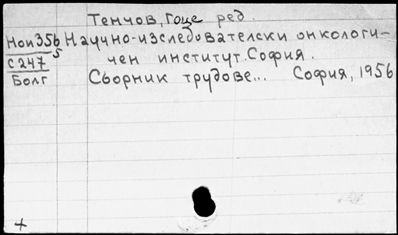 Тенчов, Гоце ред.
Нои356 Научно-изследователски онкологи-
С247 5 чен институт. София.
Болг Сборник трудове... София, 1956
+